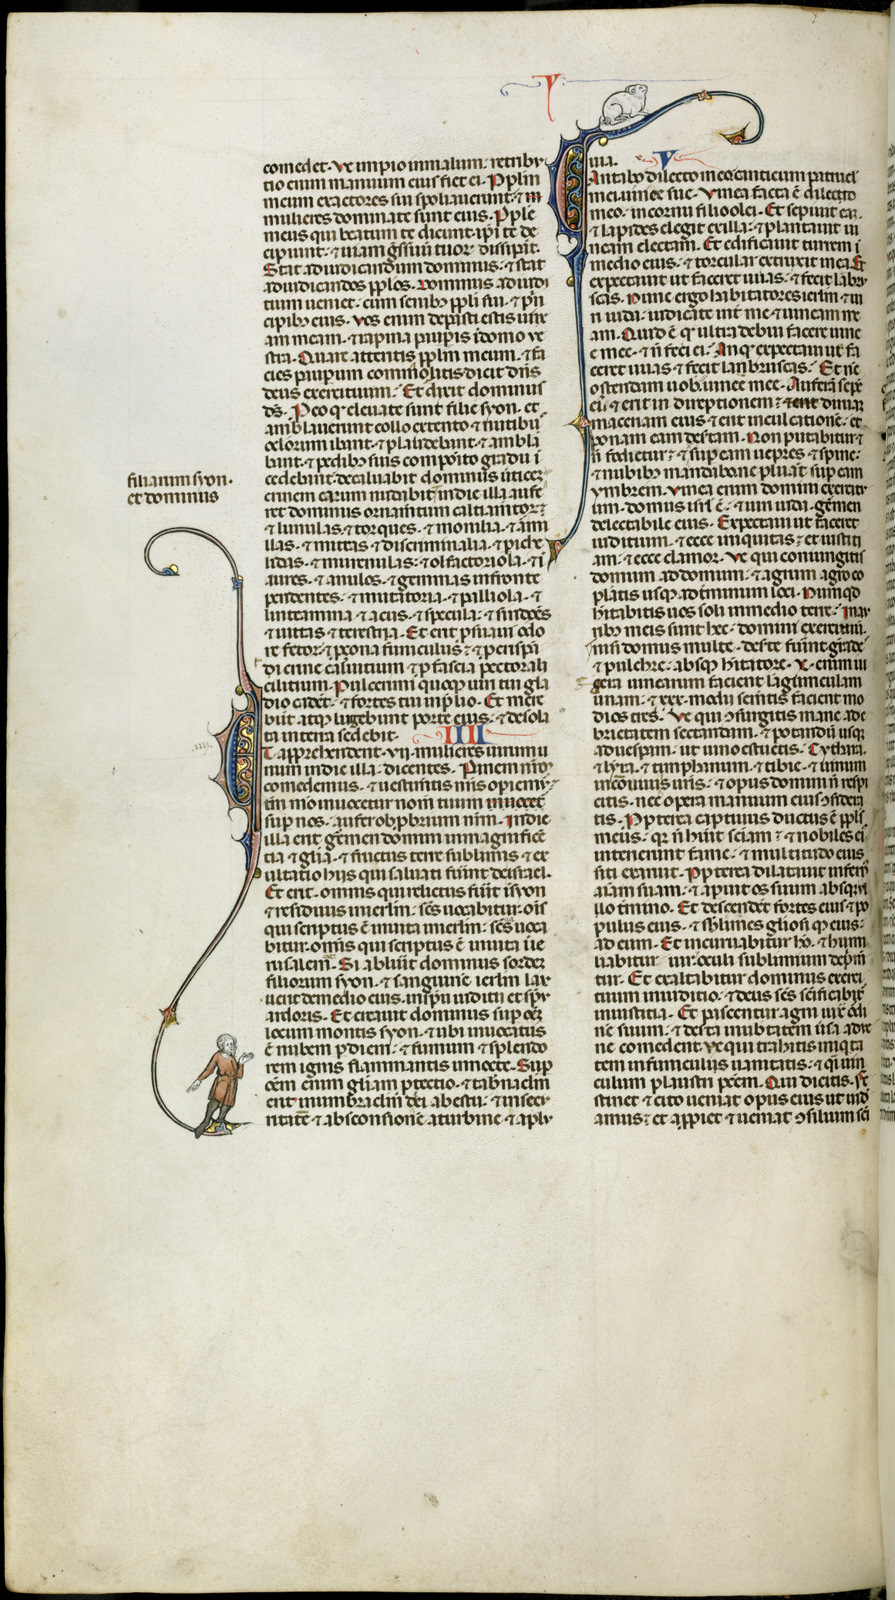 V
comedet. Ve impio in malum. retribu
tio enim manuum eius fiet ei. Pplm
meum exactores sui spoliauerunt. & m
mulieres dominate sunt eius. Pple
meus qui beatum te dicunt. ipi te de
cipiunt. & uiam gressuum tuor dissipant.
Stat ad iudicandum dominus. & stat
ad iudicandos pplos. Dominus ad iudi
tium ueniet. cum senib ppli sui. & pn
cipib eius. Vos enim depasti estis uine
am meam. & rapina pauperis in domo ve
stra. Quare atteritis pplm meum. & fa
cies pauperum commolitis dicit dns
deus exercituum. Et dixit dominus
ds. Pro eo q eleuate sunt filie syon. et
ambulauerunt collo extento & nutibus
oculorum ibant. & plaudebant. & ambula
bant. & pedib suis composito gradu i
cedebant. decaluabit dominus uerticem
filiarum syon.
et dominus
crinem earum nudabit. in die illa aufe
ret dominus ornamentum caltiamtor.
& lunulas. & torques. & monilia. & armi
llas. & mitras. & discriminalia. & piche
lidas. & murenulas. & olfactoriola. & i
aures. & anulos. & gemmas in fronte
pendentes. & mutatoria. & palliola. &
linteamina. & acus. & specula. & sindones
& uittas & terestra. Et erit pro suaui odo
re fetor. & pro zona funiculus. & pro crispan
ti crine caluitium & p fascia pectorali
cilitium. Pulcerrimi quoque uiri tui gla
dio cadet. & fortes tui in plio. Et mere
bunt atq lugebunt porte eius. & desola
ta in terra sedebit. IIII
Et apprehendent. vii. mulieres uirum u
num in die illa. dicentes. Panem nrm
comedemus. & uestimtis nris opiemr.
tm mo inuocetur nom tuum inuocet
sup nos. aufer obprbrium nrm. In die
illa erit germen domini in magnificen
tia & glia. & fructus terre sublimis & ex
ultatio hiis qui saluati fuint de israel.
Et erit. omnis qui relictus fuit in syon
& residuus in ierlm. scs uocabitur. ois
qui scriptus e in uita in ierlm. scs uoca
bitur. omnis qui scriptus e in uita in ie
rusalem. Si abluerit dominus sordes
filiorum syon. & sanguine ierlm lax
uerit de medio eius. in spu iuditii et spu
ardoris. Et creauit dominus sup omem
locum montis syon. & ubi inuocatus
e nubem p diem. & fumum & splendo
rem ignis flammantis in nocte. Sup
omem enim gliam ptectio. & tabnaclm
erit in umbraclm diei ab estu. & in secu
ritate & absconsione a turbine & a plu
uia. V
Cantabo dilecto meo canticum patruel
mei. uinee sue. Vinea facta e dilecto
meo. in cornu filio olei. Et sepiuit ea.
& lapides elegit ex illa. & plantauit ui
neam electam. Et edificauit turrem i
medio eius. & torcular extruxit in ea. Et
expectauit ut faceret uuas. & fecit labru
scas. Nunc ergo habitatores ierlm & uiri
iuda. iudicate int me & uineam me
am. Quid e q ultra debui facere uine
e mee. & n feci ei. An q expectaui ut fa
ceret uuas & fecit labruscas. Et nc
ostendam uob uinee mee. Auferam sepe
ei & erit in direptionem. & diruam
maceriam eius & erit in culcatione. et
ponam eam desertam. Non putabitur &
n fodietur. & sup eam uepres & spine.
& nubib mandabo ne pluat sup eam
ymbrem. Vinea enim domini exercitu
um. domus isrl e. & uiri iuda. germen
delectabile eius. Expectaui ut faceret
iuditium. & ecce iniquitas. & iustiti
am. & ecce clamor. Ve qui coniungitis
domum ad domum. & agrum agro co
pulatis usq ad terminum loci. Numqd
hitabitis uos soli in medio terre. In au
rib meis sunt hec. domini exercituum.
nisi domus multe. deserte fuint grade
& pulchre. absq hitatore. X. enim iu
gera uinearum facient lagunculam
unam. & xxx. modii sementis facient mo
dios tres. Ve qui gsurgitis mane ad e
brietatem sectandam. & potandum usq
ad uesperam. ut uino estuetis. Cythara.
& lyra. & timphanum. & tibie. & uinum
in conuiuiis uris. & opus domini n respi
citis. nec opera manuum eius gsidera
tis. Ppterea captiuus ductus e ppls
meus. qr n huit sciam. & nobiles ei
interierunt fame. & multitudo eius
siti exaruit. Ppterea dilatauit infern
aiam suam. & apuit os suum absq u
llo termino. Et descendet fortes eius & po
pulus eius. & sblimes gliosi q eius.
ad eum. Et incuruabitur ho. & humi
liabitur uir. oculi sublimium deprim
tur. Et exaltabitur dominus exerci
tuum in iuditio. & deus scs scificabit
in iustitia. Et pascentur agni iux ordi
ne suum. & deserta in ubtatem usa adue
ne comedent. Ve qui trahitis iniqta
tem in funiculis uanitatis. & qi uin
culum plaustri peccm. Qui dicitis. Fe
stinet & cito ueniat opus eius ut uid
amus. et appiet & ueniat gsilium sci